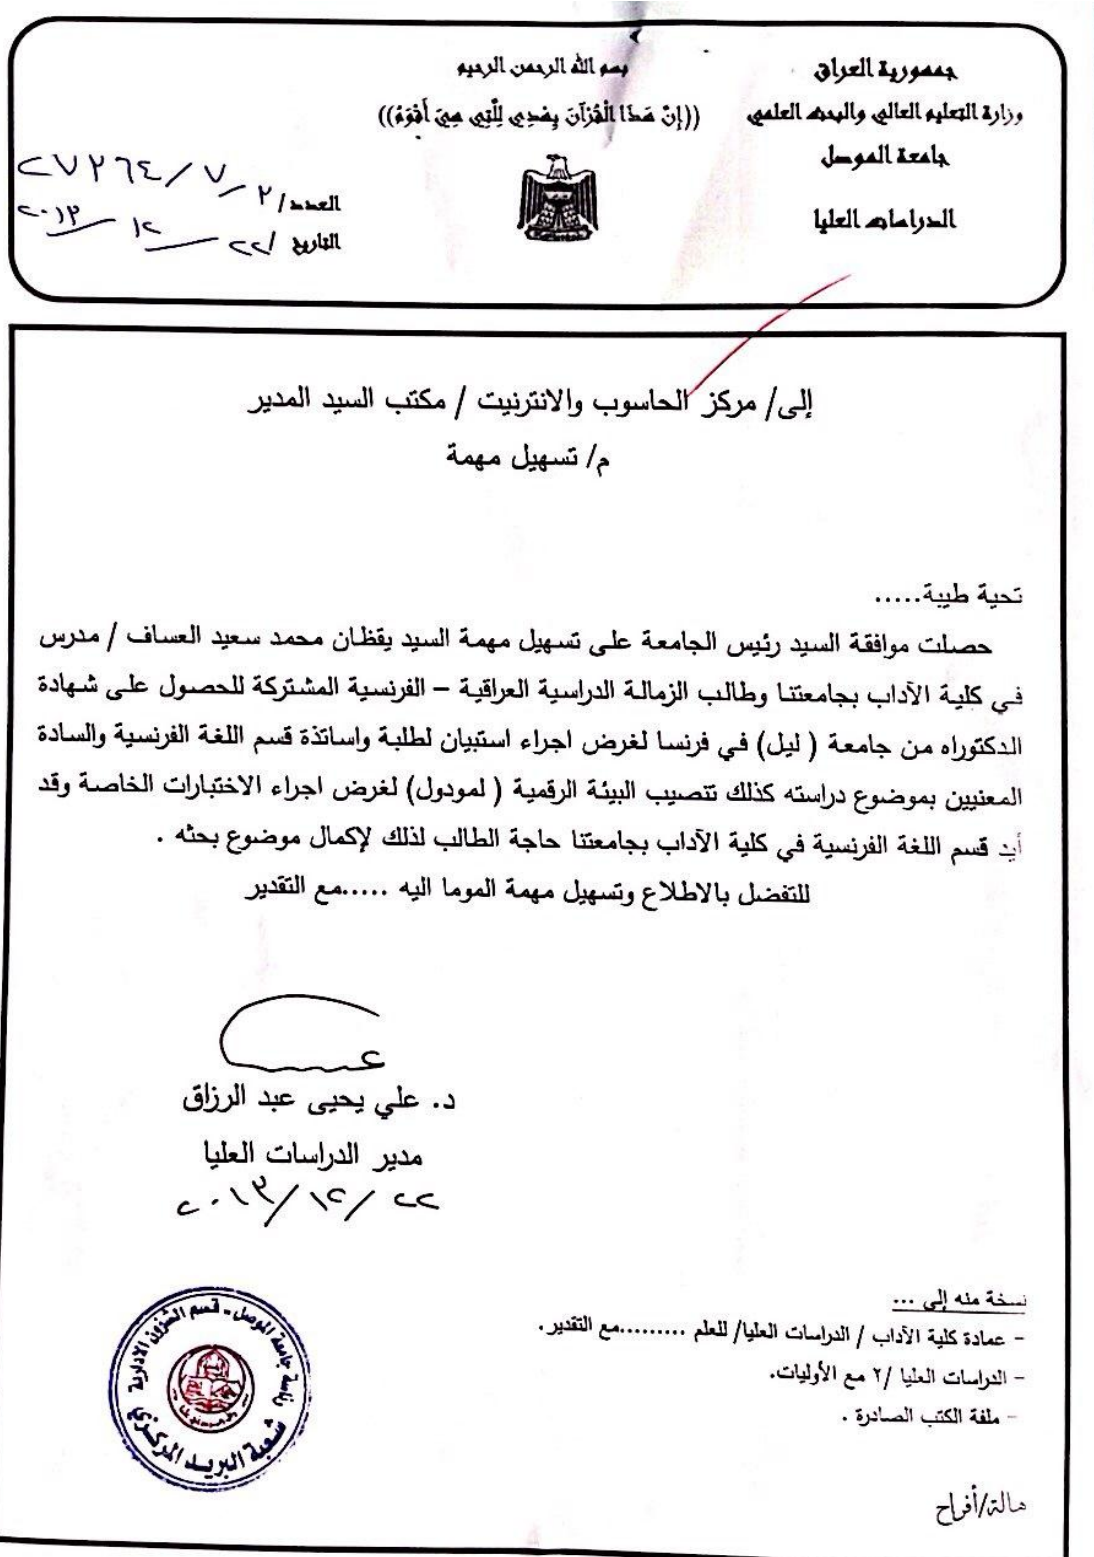 جمهورية العراق
وزارة التعليم العالي والبحث العلمي
جامعة الموصل
الدراسات العليا
بسم الله الرحمن الرحيم
((إِنَّ هَذَا الْقُرْآنَ يِهْدِي لِلَّتِي هِيَ أَقْوَمُ))
العدد/ ٢٧٢٦٤/٧/٢
التاريخ /٢٢ ١٢ ٢٠١٣
إلى/ مركز الحاسوب والانترنيت / مكتب السيد المدير
م/ تسهيل مهمة
تحية طيبة.....
حصلت موافقة السيد رئيس الجامعة على تسهيل مهمة السيد يقظان محمد سعيد العساف / مدرس
في كلية الآداب بجامعتنا وطالب الزمالة الدراسية العراقية – الفرنسية المشتركة للحصول على شهادة
الدكتوراه من جامعة ( ليل) في فرنسا لغرض اجراء استبيان لطلبة واساتذة قسم اللغة الفرنسية والسادة
المعنيين بموضوع دراسته كذلك تتصيب البيئة الرقمية ( لمودول) لغرض اجراء الاختبارات الخاصة وقد
أيد قسم اللغة الفرنسية في كلية الآداب بجامعتنا حاجة الطالب لذلك لإكمال موضوع بحثه .
للتفضل بالاطلاع وتسهيل مهمة الموما اليه .....مع التقدير
د. علي يحيى عبد الرزاق
مدير الدراسات العليا
٢٠١٣/١٢/٢٢
نسخة منه إلى ...
- عمادة كلية الآداب / الدراسات العليا/ للعلم .........مع التقدير.
- الدراسات العليا /٢ مع الأوليات.
- ملفة الكتب الصادرة .
هالة/أفراح
رئاسة جامعة الموصل - قسم الشؤون الادارية
شعبة البريد المركزي